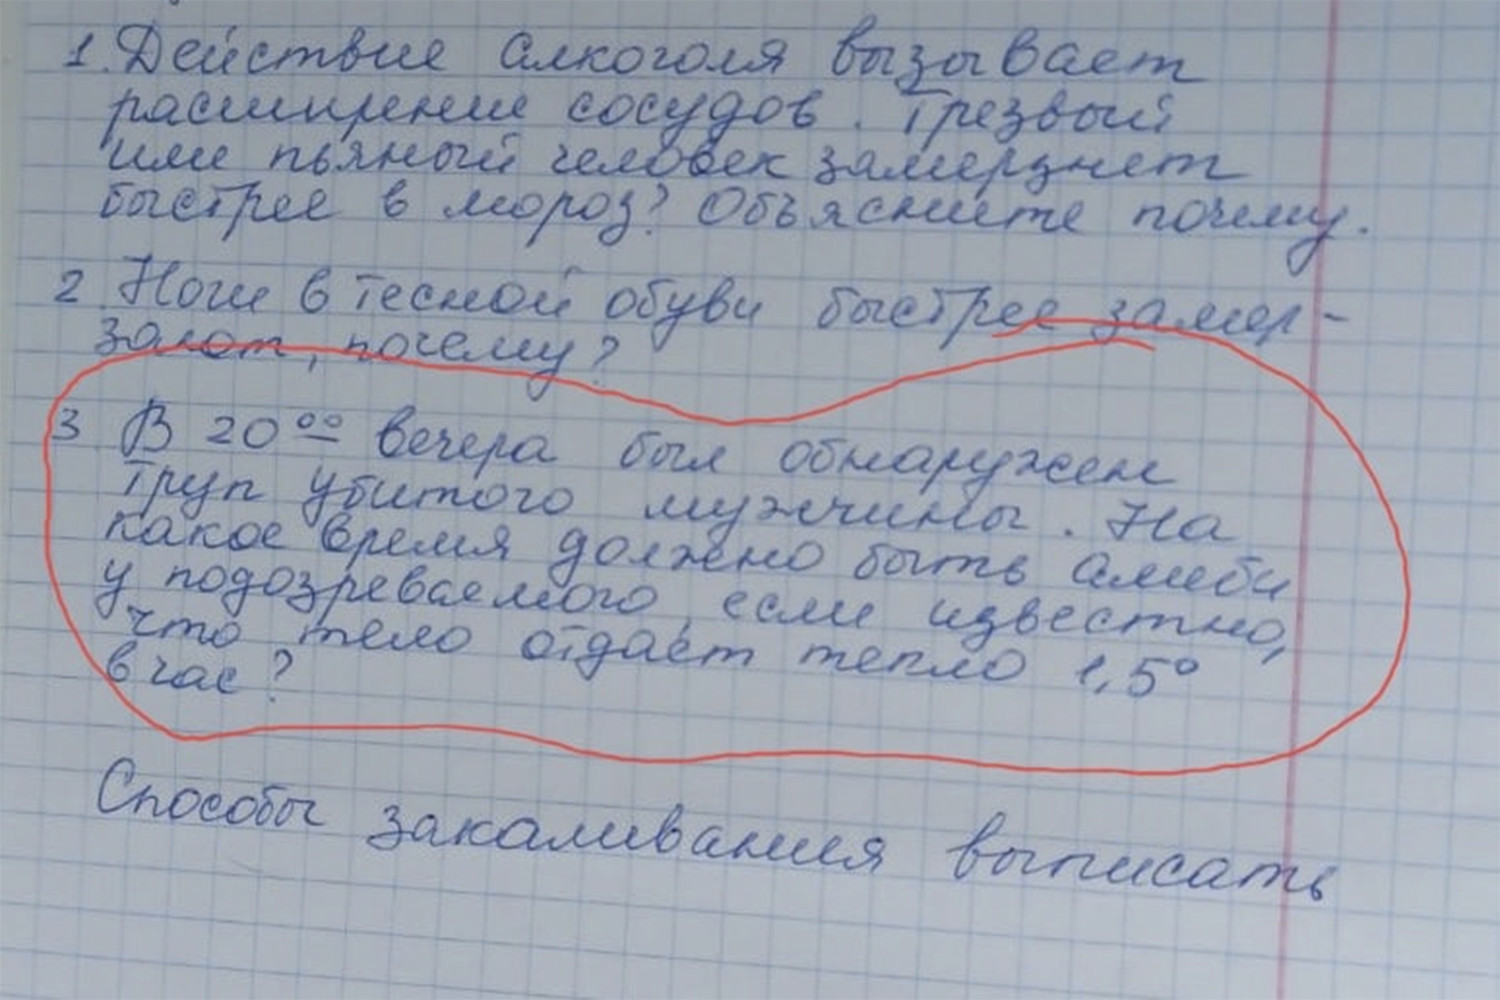 1. Действие алкоголя вызывает
расширение сосудов. Трезвый
или пьяный человек замерзнет
быстрее в мороз? Объясните почему.
2. Ноги в тесной обуви быстрее замер-
зают, почему?
3 В 20 00 вечера был обнаружен
труп убитого мужчины. На
какое время должно быть алиби
у подозреваемого, если известно,
что тело отдает тепло 1,5°
в час?
Способы закаливания выписать